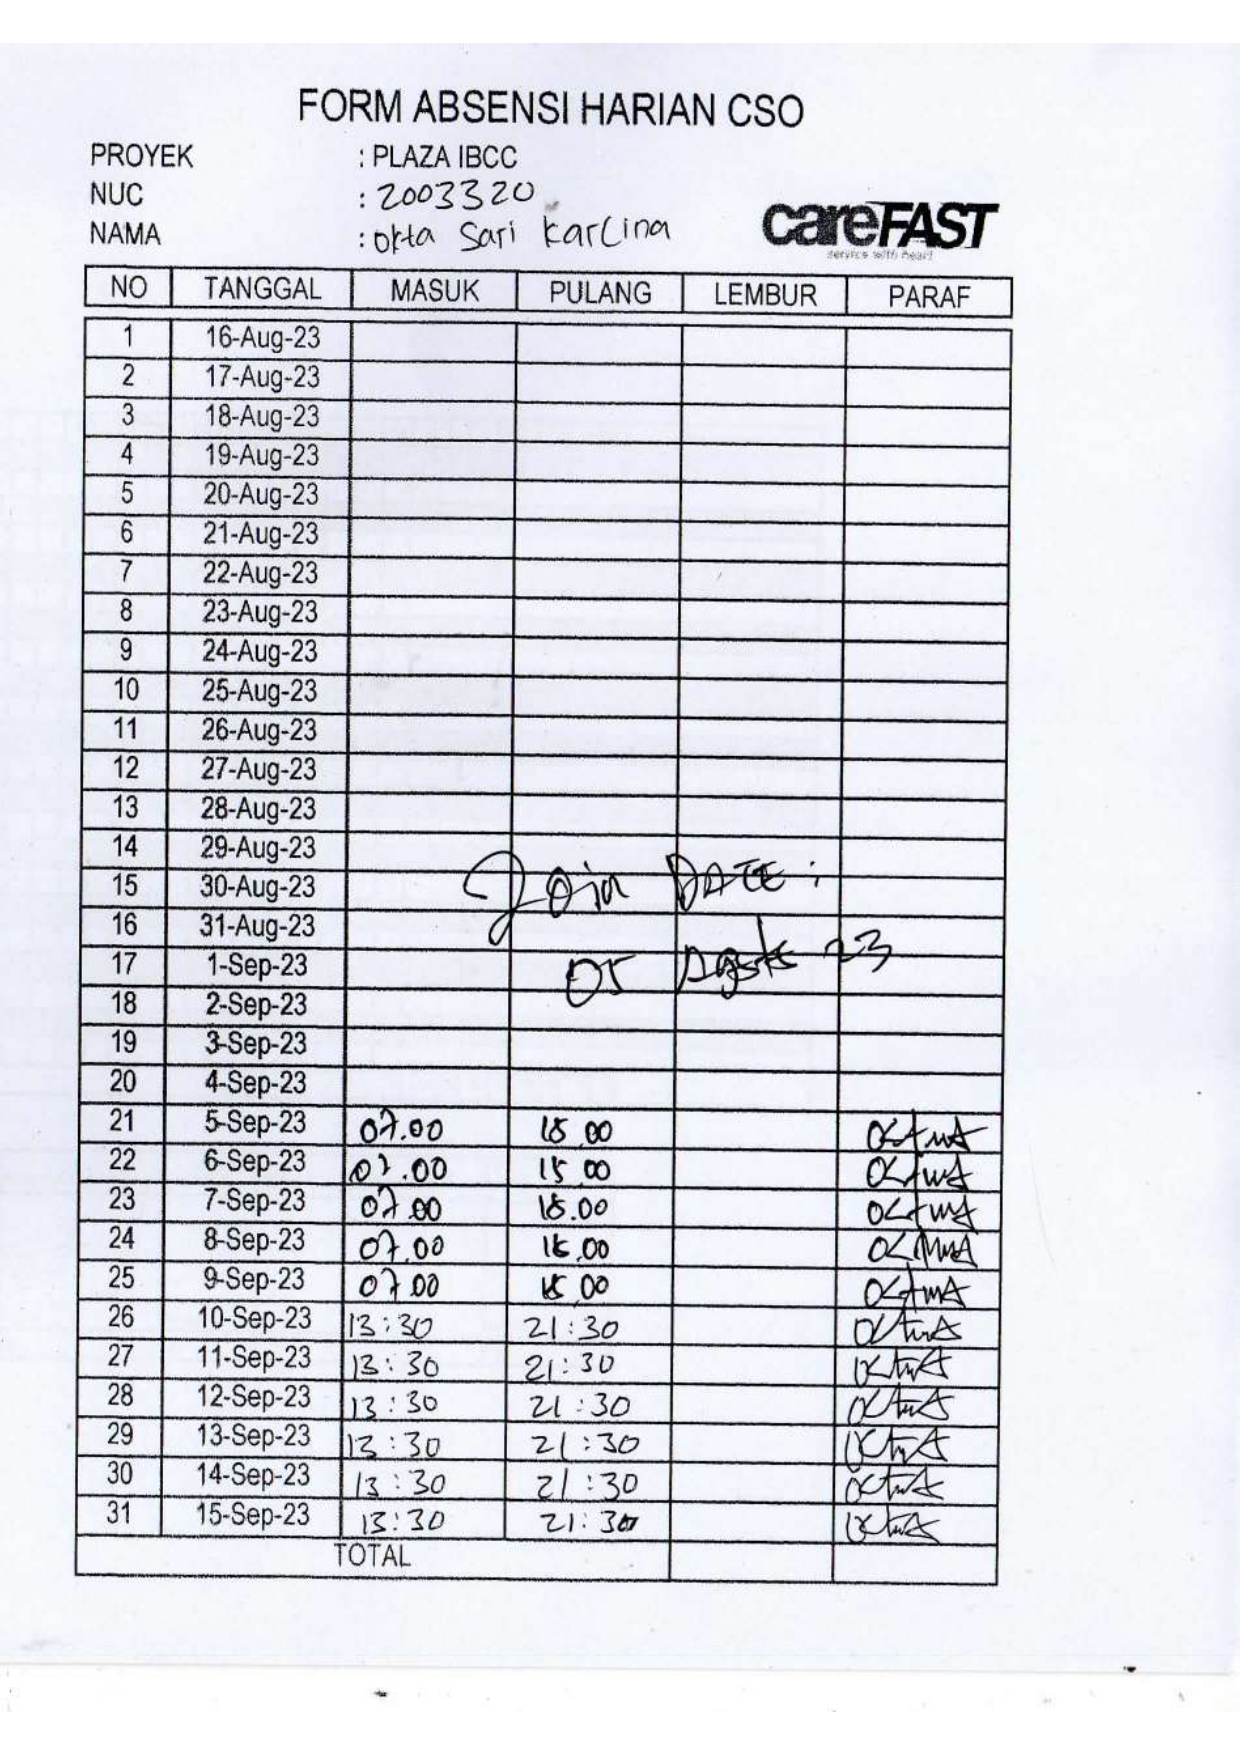 FORM ABSENSI HARIAN CSO
PROYEK : PLAZA IBCC
NUC : 2003320
NAMA : okta Sari karlina
careFAST
service with heart
NO TANGGAL MASUK PULANG LEMBUR PARAF
1 16-Aug-23
2 17-Aug-23
3 18-Aug-23
4 19-Aug-23
5 20-Aug-23
6 21-Aug-23
7 22-Aug-23
8 23-Aug-23
9 24-Aug-23
10 25-Aug-23
11 26-Aug-23
12 27-Aug-23
13 28-Aug-23
14 29-Aug-23
15 30-Aug-23
Join DATE :
16 31-Aug-23
17 1-Sep-23
05 Agsts 23
18 2-Sep-23
19 3-Sep-23
20 4-Sep-23
21 5-Sep-23 07.00 15.00
22 6-Sep-23 07.00 15.00
23 7-Sep-23 07.00 15.00
24 8-Sep-23 07.00 15.00
25 9-Sep-23 07.00 15.00
26 10-Sep-23 13:30 21:30
27 11-Sep-23 13:30 21:30
28 12-Sep-23 13:30 21:30
29 13-Sep-23 13:30 21:30
30 14-Sep-23 13:30 21:30
31 15-Sep-23 13:30 21:30
TOTAL